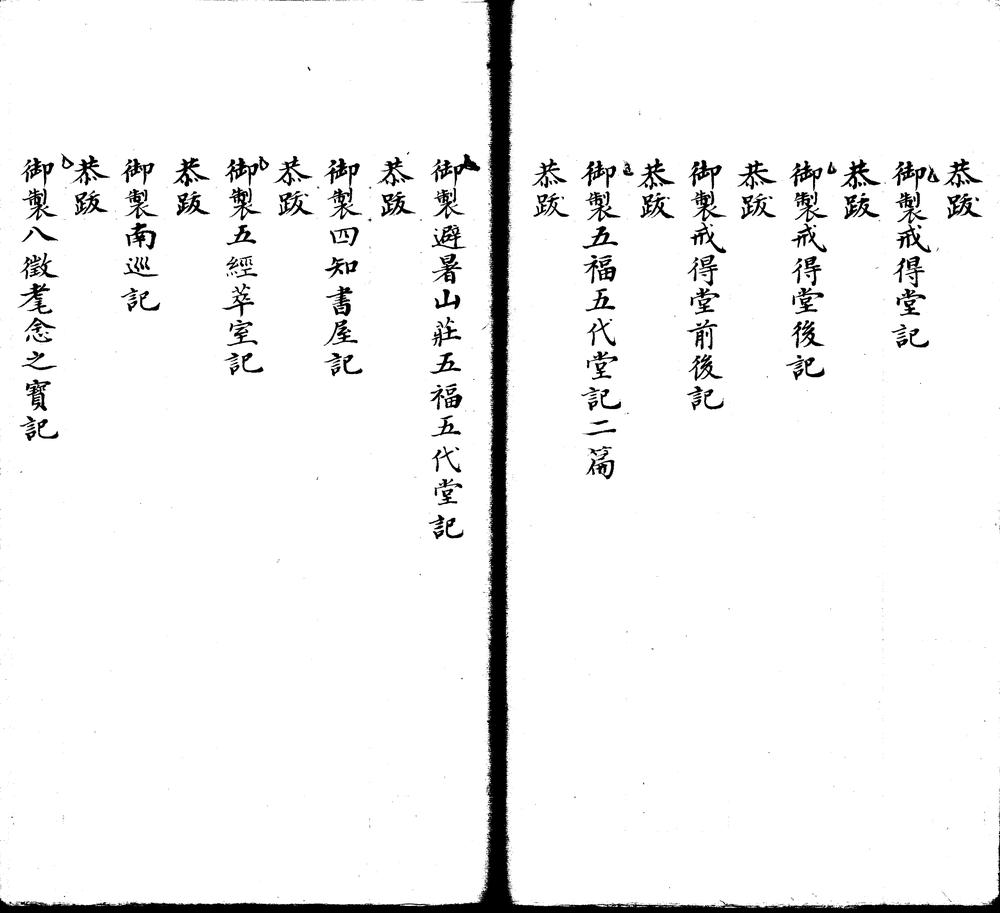 恭跋
御製戒得堂記
恭跋
御製戒得堂後記
恭跋
御製戒得堂前後記
恭跋
御製五福五代堂記二篇
恭跋
御製避暑山莊五福五代堂記
恭跋
御製四知書屋記
恭跋
御製五經萃室記
恭跋
御製南巡記
恭跋
御製八徵耄念之寶記